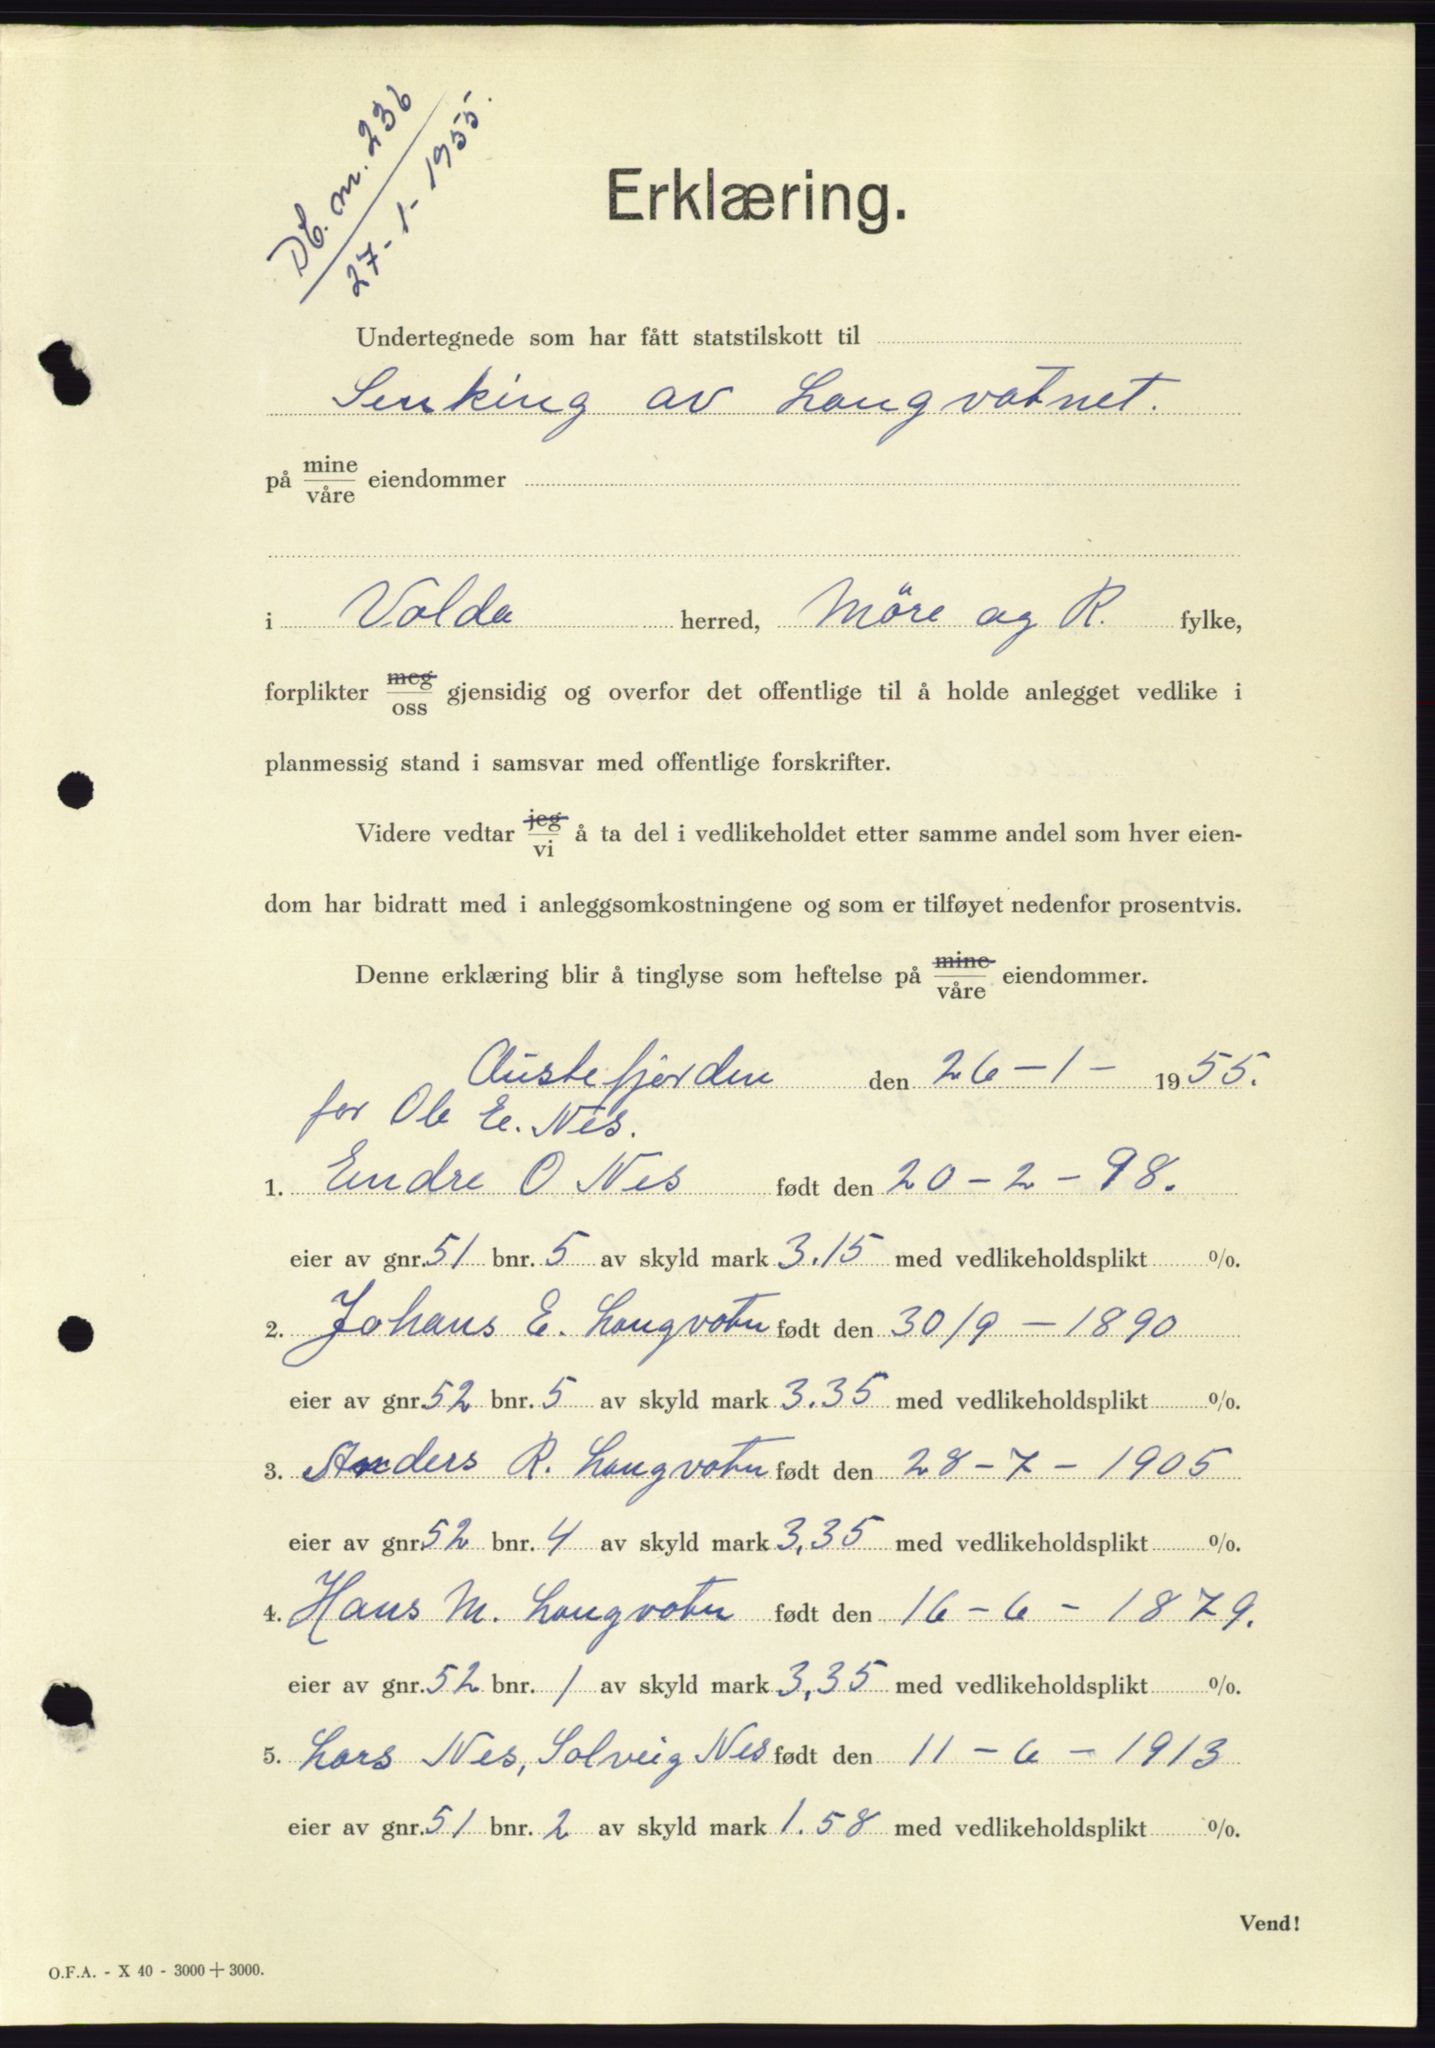 Db. nr. 236
27-1-1955.
Erklæring.
Undertegnede som har fått statstilskott til
Senking av Langvatnet.
på mine/våre eiendommer
i Volda herred, Möre og R. fylke,
forplikter meg/oss gjensidig og overfor det offentlige til å holde anlegget vedlike i
planmessig stand i samsvar med offentlige forskrifter.
Videre vedtar jeg/vi å ta del i vedlikeholdet etter samme andel som hver eien-
dom har bidratt med i anleggsomkostningene og som er tilføyet nedenfor prosentvis.
Denne erklæring blir å tinglyse som heftelse på mine/våre eiendommer.
Austefjorden den 26-1- 1955.
for Ole E. Nes.
1. Endre O Nes født den 20-2-98.
eier av gnr. 51 bnr. 5 av skyld mark 3.15 med vedlikeholdsplikt %.
2. Johans E. Langvatn født den 30/9 - 1890
eier av gnr. 52 bnr. 5 av skyld mark 3.35 med vedlikeholdsplikt %.
3. Anders R. Langvatn født den 28-7-1905
eier av gnr. 52 bnr. 4 av skyld mark 3,35 med vedlikeholdsplikt %.
4. Hans M. Langvatn født den 16-6-1879.
eier av gnr. 52 bnr. 1 av skyld mark 3,35 med vedlikeholdsplikt %.
5. Lars Nes, Solveig Nes født den 11-6-1913
eier av gnr. 51 bnr. 2 av skyld mark 1.58 med vedlikeholdsplikt %.
Vend!
O.F.A. - X 40 - 3000 + 3000.